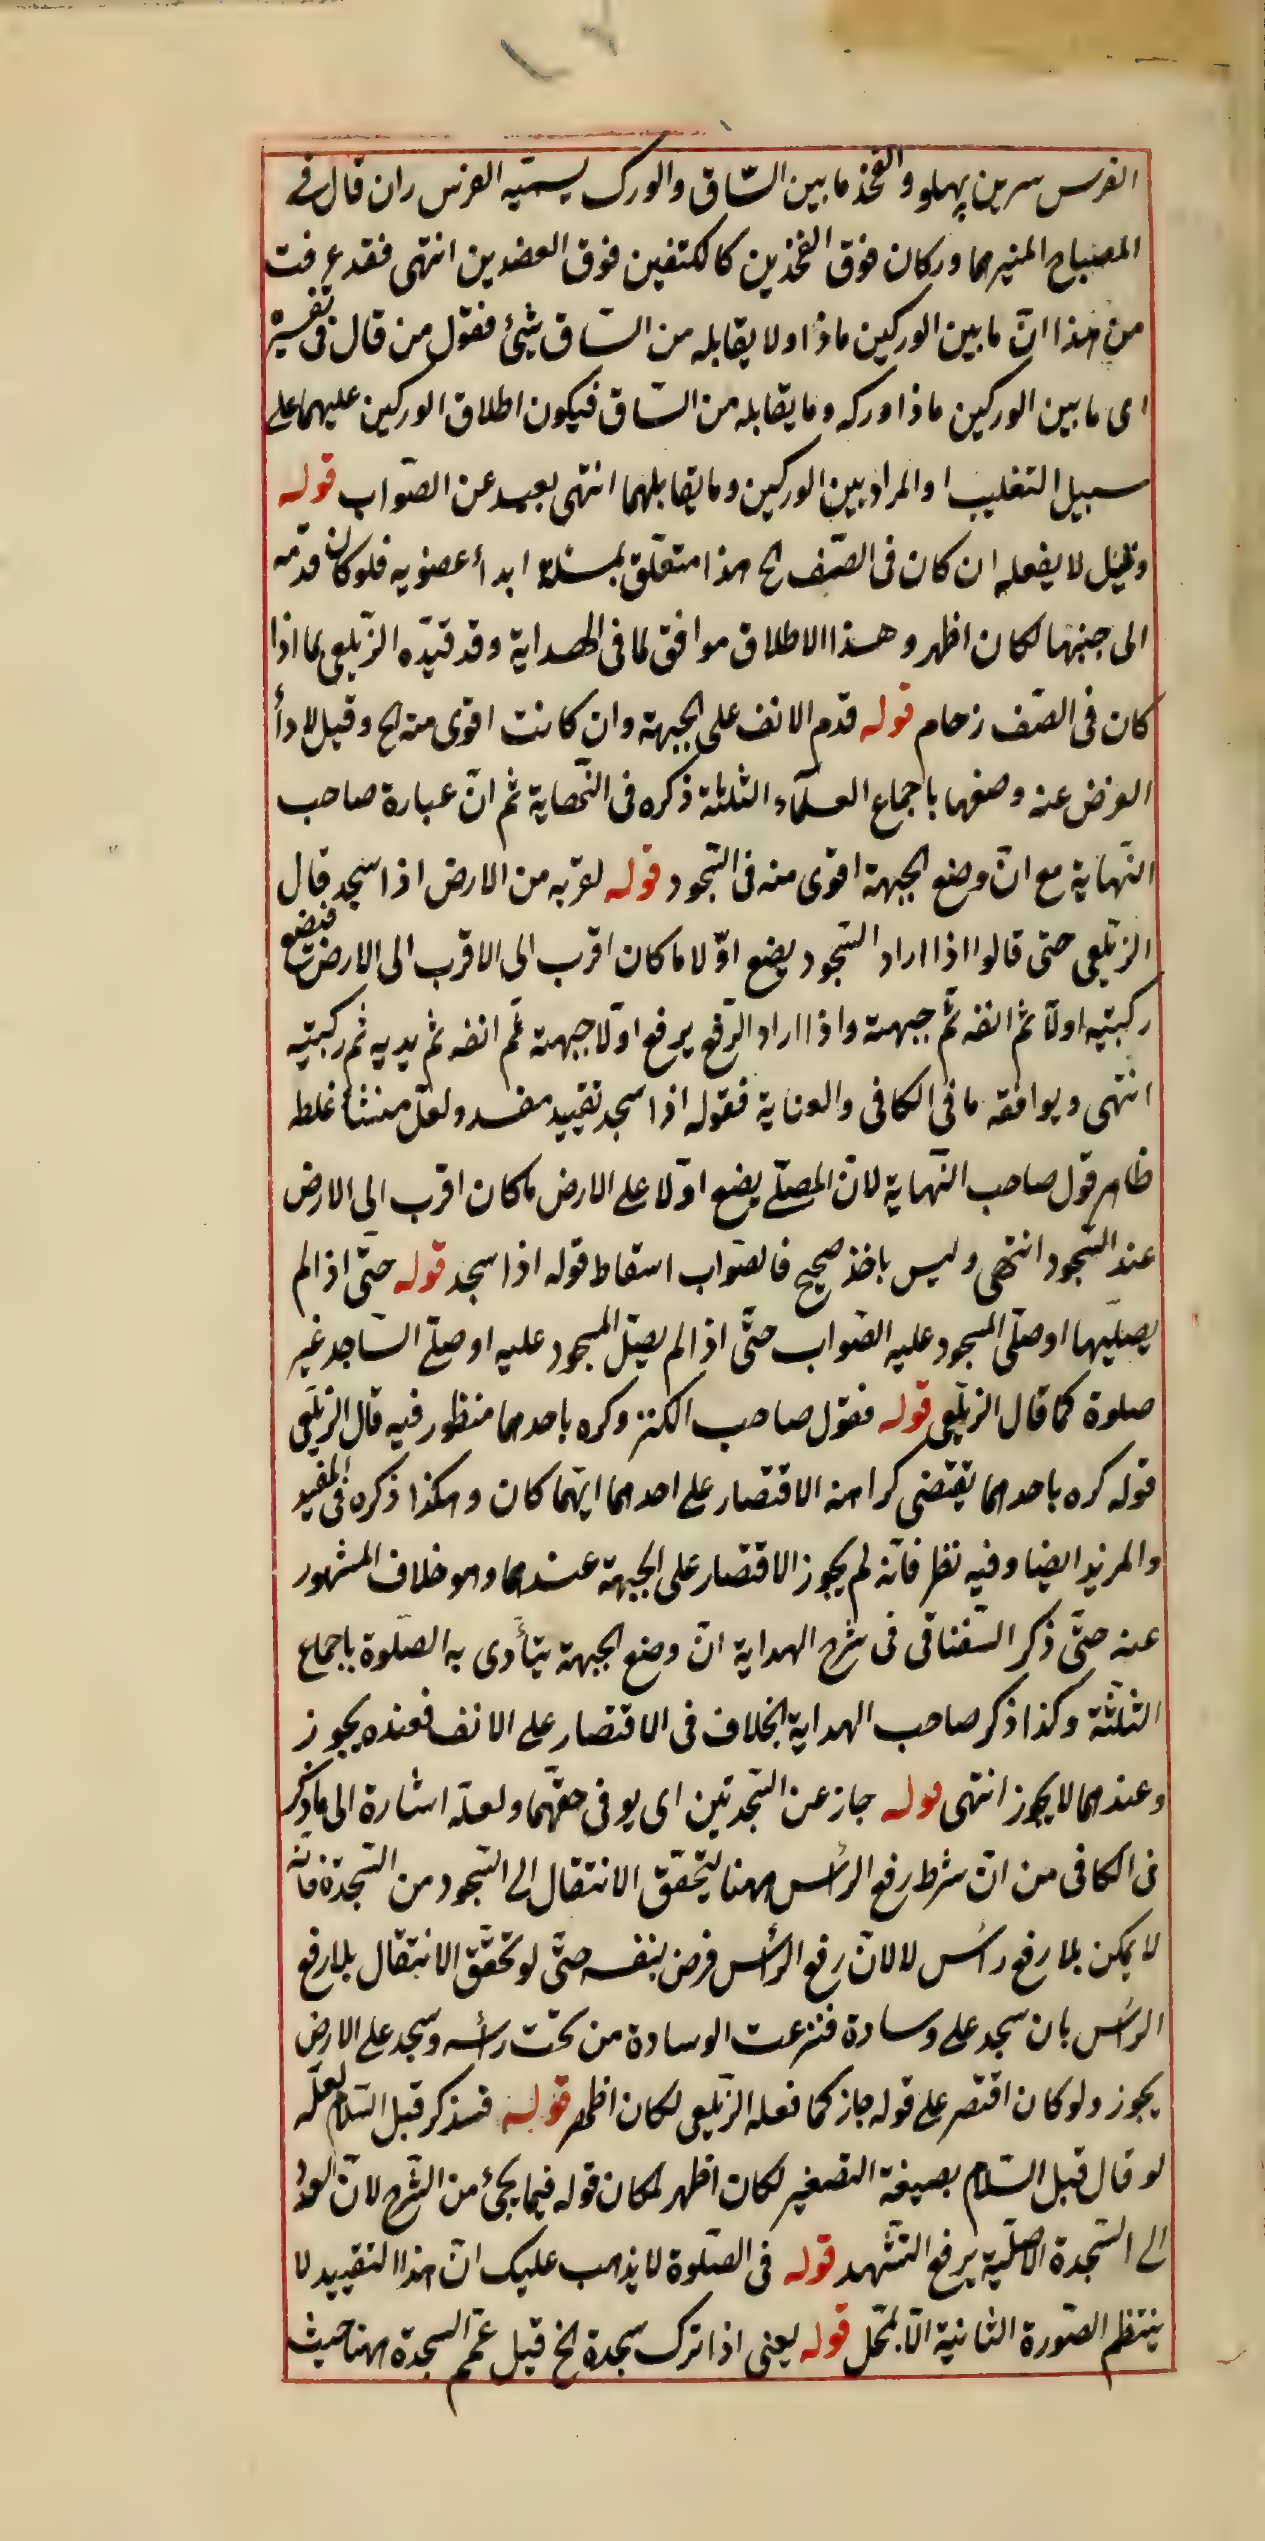 الفرس سرين پهلو والفخذ ما بين السّاق والورك يسمّيه الفرس ران قال في
المصباح المنير هما وركان فوق الفخذين كالكتفين فوق العضدين انتهى فقد عرفت
من هذا انّ ما بين الوركين ماذا ولا يقابله من السّاق شيئ فقول من قال في تفسيره
اى ما بين الوركين ماذا وركه وما يقابله من السّاق فيكون اطلاق الوركين عليهما على
سبيل التغليب او المراد بين الوركين وما يقابلهما انتهى بعيد عن الصّواب قوله
وقيل لا يفعله ان كان في الصّف الخ هذا متعلّق بمسئلة ابدأ عضويه فلو كان قدّمه
الى جنبها لكان اظهر وهذا الاطلاق موافق لما في الهداية وقد قيّده الزّيلعي بما اذا
كان في الصّف زحام قوله قدم الانف على الجبهة وان كانت اقوى منه الخ وقيل لاداء
الفرض عنه وضعها باجماع العلمآء الثلثة ذكره في النّهاية ثم انّ عبارة صاحب
النّهاية مع انّ وضع الجبهة اقوى منه في السّجود قوله لقربه من الارض اذا سجد قال
الزيلعي حتى قالوا اذا اراد السّجود يضع اوّلا ما كان اقرب الى الاقرب الى الارض فيضع
ركبتيه اولا ثم انفه ثم جبهته واذا اراد الرّفع يرفع اوّلا جبهته ثم انفه ثم يديه ثم ركبتيه
انتهى ويوافقه ما في الكافي والعناية فقوله اذا سجد تقييد مفسد ولعلّ منشأ غلطه
ظاهر قول صاحب النّهاية لانّ المصلّي يضع اوّلا على الارض ما كان اقرب الى الارض
عند السّجود انتهى وليس باخذ صحيح فالصّواب اسقاط قوله اذا سجد قوله حتّى اذا لم
يصلّيها او صلّى المسجود عليه الصّواب حتّى اذا لم يصلّ المسجود عليه او صلّى السّاجد غير
صلوة كما قال الزيلعي قوله فقول صاحب الكنز وكره باحدهما منظور فيه قال الزيلعي
قوله كره باحدهما يقتضى كراهة الاقتصار على احدهما ايّهما كان وهكذا ذكره في المفيد
والمزيد ايضا وفيه نظر فانّه لم يجوز الاقتصار على الجبهة عندهما وهو خلاف المشهور
عنه حتّى ذكر السّغناقي في شرح الهداية انّ وضع الجبهة يتأدى به الصّلوة باجماع
الثلثة وكذا ذكر صاحب الهداية الخلاف في الاقتصار على الانف فعنده يجوز
وعندهما لا يجوز انتهى قوله جاز عن السّجدتين اى يوفى حقّهما ولعلّه اشارة الى ما ذكر
في الكافي من انّ شرط رفع الرأس ههنا ليتحقّق الانتقال الى السّجود من السّجدة فانّه
لا يمكن بلا رفع رأس لا لانّ رفع الرأس فرض بنفسه حتّى لو تحقّق الانتقال بلا رفع
الرأس بان سجد على وسادة فنزعت الوسادة من تحت رأسه وسجد على الارض
يجوز ولو كان اقتصر على قوله جاز كما فعله الزيلعي لكان اظهر قوله فتذكر قبل السّلام لعلّه
لو قال قبيل السّلام بصيغة التصغير لكان اظهر لمكان قوله فيما يجئ من الشّرح لانّ العود
الى السّجدة الاصليّة يرفع التّشهد قوله في الصّلوة لا يذهب عليك انّ هذا التقييد لا
ينتظم الصّورة الثانية الّا بتمحّل قوله يعنى اذا ترك سجدة الخ قيل عمّم السجدة ههنا حيث